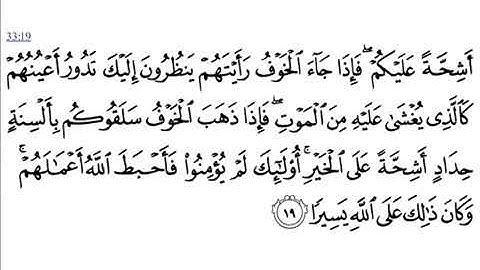 33:19
أَشِحَّةً عَلَيْكُمْ ۖ فَإِذَا جَآءَ الْخَوْفُ رَأَيْتَهُمْ يَنظُرُونَ إِلَيْكَ تَدُورُ أَعْيُنُهُمْ
كَالَّذِى يُغْشَىٰ عَلَيْهِ مِنَ الْمَوْتِ ۖ فَإِذَا ذَهَبَ الْخَوْفُ سَلَقُوكُم بِأَلْسِنَةٍ
حِدَادٍ أَشِحَّةً عَلَى الْخَيْرِ ۚ أُو۟لَٰٓئِكَ لَمْ يُؤْمِنُوا۟ فَأَحْبَطَ اللَّهُ أَعْمَٰلَهُمْ ۚ
وَكَانَ ذَٰلِكَ عَلَى اللَّهِ يَسِيرًا ١٩